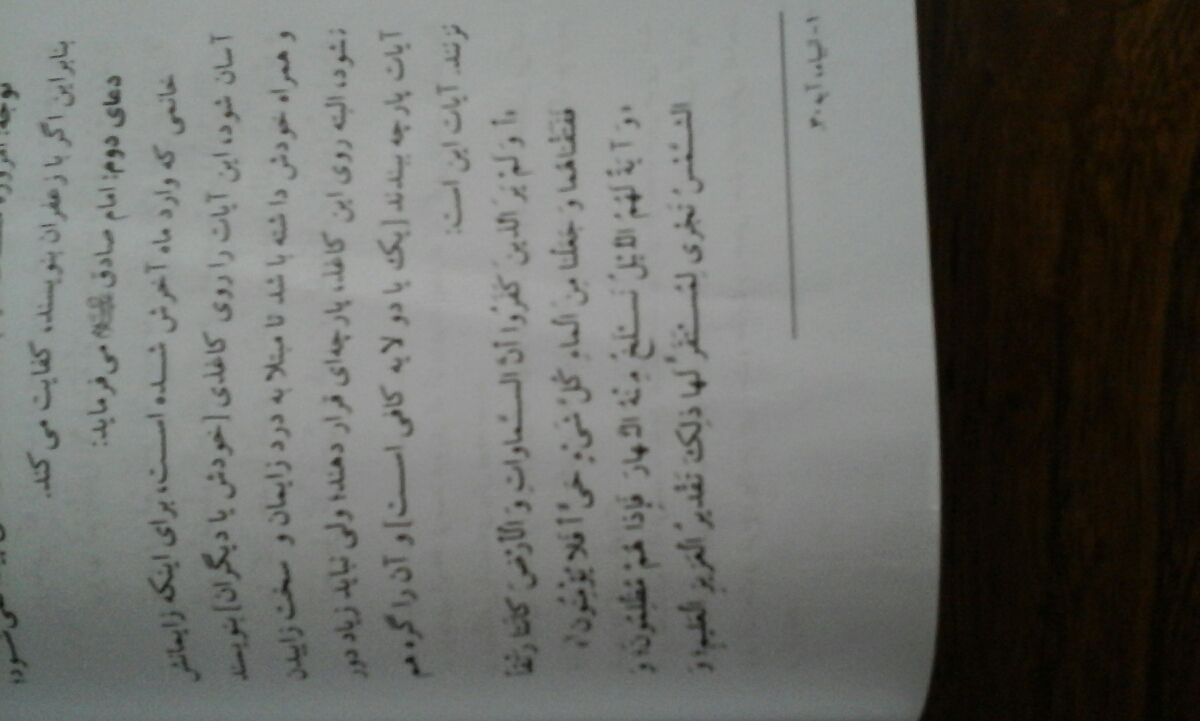 بنابراین اگر با زعفران بنویسند، کفایت می کند.
دعای دوم: امام صادق می فرماید:
خانمی که وارد ماه آخرش شده است، برای اینکه زایمانش
آسان شود، این آیات را روی کاغذی [خودش یا دیگران] بنویسد
و همراه خودش داشته باشد تا مبتلا به درد زایمان و سخت زاییدن
نشود، البته روی این کاغذ، پارچه‌ای قرار دهند؛ ولی نباید زیاد دور
آیات پارچه ببندند [یک یا دو لایه کافی است] و آن را گره هم
نزنند. آیات این است:
«أَ وَ لَمْ يَرَ الَّذينَ كَفَرُوا أَنَّ السَّماواتِ وَ الْأَرْضَ كانَتا رَتْقاً
فَفَتَقْناهُما وَ جَعَلْنا مِنَ الْماءِ كُلَّ شَيْ‏ءٍ حَيٍّ أَ فَلا يُؤْمِنُونَ»؛
«وَ آيَةٌ لَهُمُ اللَّيْلُ نَسْلَخُ مِنْهُ النَّهارَ فَإِذا هُمْ مُظْلِمُونَ؛ وَ
الشَّمْسُ تَجْري لِمُسْتَقَرٍّ لَها ذلِكَ تَقْديرُ الْعَزيزِ الْعَليمِ؛ وَ
۱- انبیاء، آیه ۳۰.